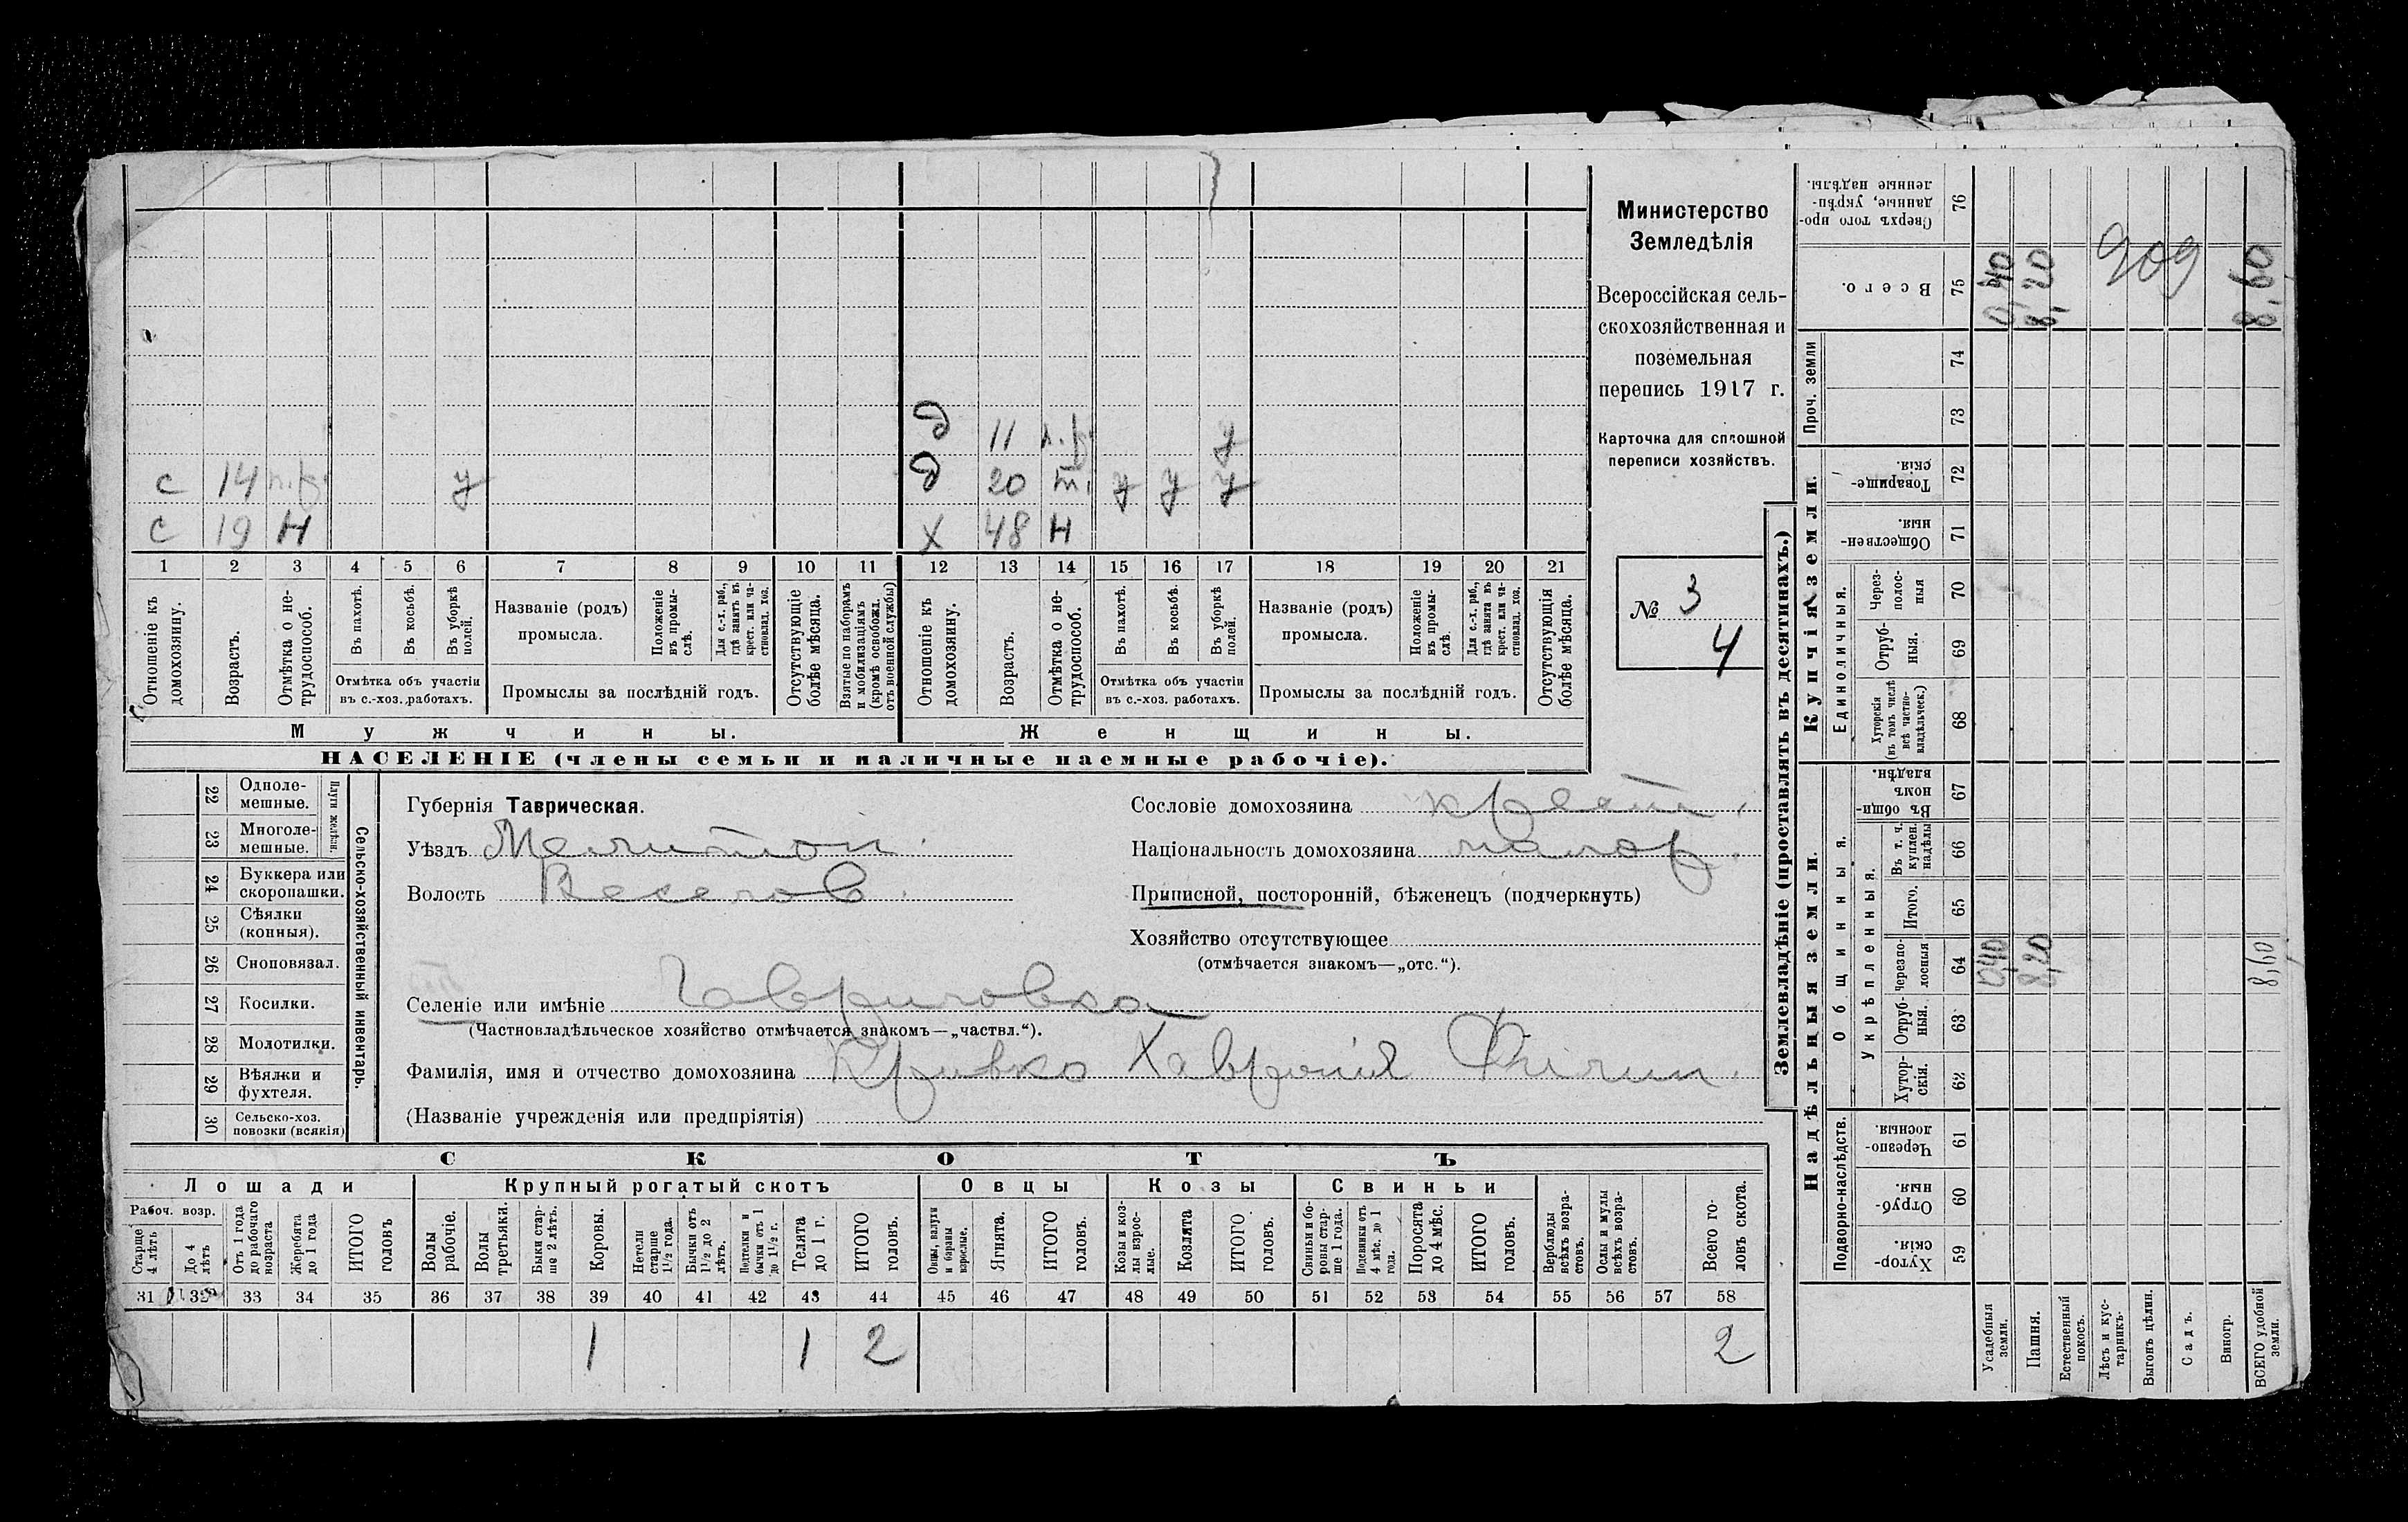 с 14 п.р. у
с 19 н
д 11 п.р. у
д 20 т. у у у
х 48 н
1 2 3 4 5 6 7 8 9 10 11 12 13 14 15 16 17 18 19 20 21
Отношеніе къ домохозяину.
Возрастъ.
Отмѣтка о не-
трудоспособ.
Въ пахотѣ.
Въ косьбѣ.
Въ уборкѣ
полей.
Отмѣтка объ участіи
въ с.-хоз. работахъ.
Названіе (родъ)
промысла.
Положеніе
въ промы-
слѣ.
Для с.-х. раб.,
гдѣ занятъ въ
крест. или ча-
стновлад. хоз.
Промыслы за послѣдній годъ.
Отсутствующіе
болѣе мѣсяца.
Взятые по наборамъ
и мобилизаціямъ
(кромѣ освобожд.
отъ военной службы)
Отношеніе къ
домохозяину.
Возрастъ.
Отмѣтка о не-
трудоспособ.
Въ пахотѣ.
Въ косьбѣ.
Въ уборкѣ
полей.
Отмѣтка объ участіи
въ с.-хоз. работахъ.
Названіе (родъ)
промысла.
Положеніе
въ промы-
слѣ.
Для с.-х. раб.,
гдѣ занята въ
крест. или ча-
стновлад. хоз.
Промыслы за послѣдній годъ.
Отсутствующія
болѣе мѣсяца.
Мужчины.
Женщины.
НАСЕЛЕНІЕ (члены семьи и наличные наемные рабочіе).
Министерство
Земледѣлія
Всероссійская сель-
скохозяйственная и
поземельная
перепись 1917 г.
Карточка для сплошной
переписи хозяйствъ.
№ 3
4
22 Одноле-
мешные.
23 Многоле-
мешные.
Плуги желѣзн.
24 Буккера или
скоропашки.
25 Сѣялки
(конныя).
26 Сноповязал.
27 Косилки.
28 Молотилки.
29 Вѣялки и
фухтеля.
30 Сельско-хоз.
повозки (всякія)
Сельско-хозяйственный инвентарь.
Губернія Таврическая.
Уѣздъ Мелитоп.
Волость Веселов.
Сословіе домохозяина крест.
Національность домохозяина малор.
Приписной, посторонній, бѣженецъ (подчеркнуть)
Хозяйство отсутствующее
(отмѣчается знакомъ—„отс.“).
Селеніе или имѣніе Гавриловка
(Частновладѣльческое хозяйство отмѣчается знакомъ—„частвл.“).
Фамилія, имя и отчество домохозяина Кривко Хавронія Филип.
(Названіе учрежденія или предпріятія)
СКОТЪ
Лошади
Крупный рогатый скотъ
Овцы
Козы
Свиньи
Рабоч. возр.
Старше
4 лѣтъ
До 4
лѣтъ
Отъ 1 года
до рабочаго
возраста
Жеребята
до 1 года
ИТОГО
головъ
Волы
рабочіе.
Волы
третьяки.
Быки стар-
ше 2 лѣтъ.
Коровы.
Нетели
старше
1½ года.
Бычки отъ
1½ до 2
лѣтъ.
Нетелки и
бычки отъ 1
до 1½ г.
Телята
до 1 г.
ИТОГО
головъ.
Овцы, валухи
и бараны
взрослые.
Ягнята.
ИТОГО
головъ.
Козы и коз-
лы взрос-
лые.
Козлята
ИТОГО
головъ.
Свиньи и бо-
ровы стар-
ше 1 года.
Подсвинки отъ
4 мѣс. до 1
года.
Поросята
до 4 мѣс.
ИТОГО
головъ.
Верблюды
всѣхъ возра-
стовъ.
Ослы и мулы
всѣхъ возра-
стовъ.
Всего го-
ловъ скота.
31 32 33 34 35 36 37 38 39 40 41 42 43 44 45 46 47 48 49 50 51 52 53 54 55 56 57 58
1 1 2 2
Землевладѣніе (проставлять въ десятинахъ.)
Надѣльныя земли.
Купчія земли.
Проч. земли
Подворно-наслѣдств.
Общинныя.
Укрѣпленныя.
Единоличныя.
Хутор-
скія. 59
Отруб-
ныя. 60
Черезпо-
лосныя. 61
Хутор-
скія. 62
Отруб-
ныя. 63
Черезпо-
лосныя 64
Итого. 65
Въ т. ч.
куплен.
надѣлы 66
Въ общи-
номъ
владѣн. 67
Хуторскія
(въ томъ числѣ
всѣ частно-
владѣльческ.) 68
Отруб-
ныя. 69
Через-
полос-
ныя 70
Обществен-
ныя. 71
Товарище-
скія. 72
73
74
Всего. 75
Сверхъ того про-
данные, укрѣп-
ленные надѣлы. 76
Усадебныя
земли.
0,40 0,40
Пашня.
8,20 8,20
Естественный
покосъ.
Лѣсъ и кус-
тарникъ.
Выгонъ цѣлин.
Садъ.
Виногр.
ВСЕГО удобной
земли.
8,60 8,60
909